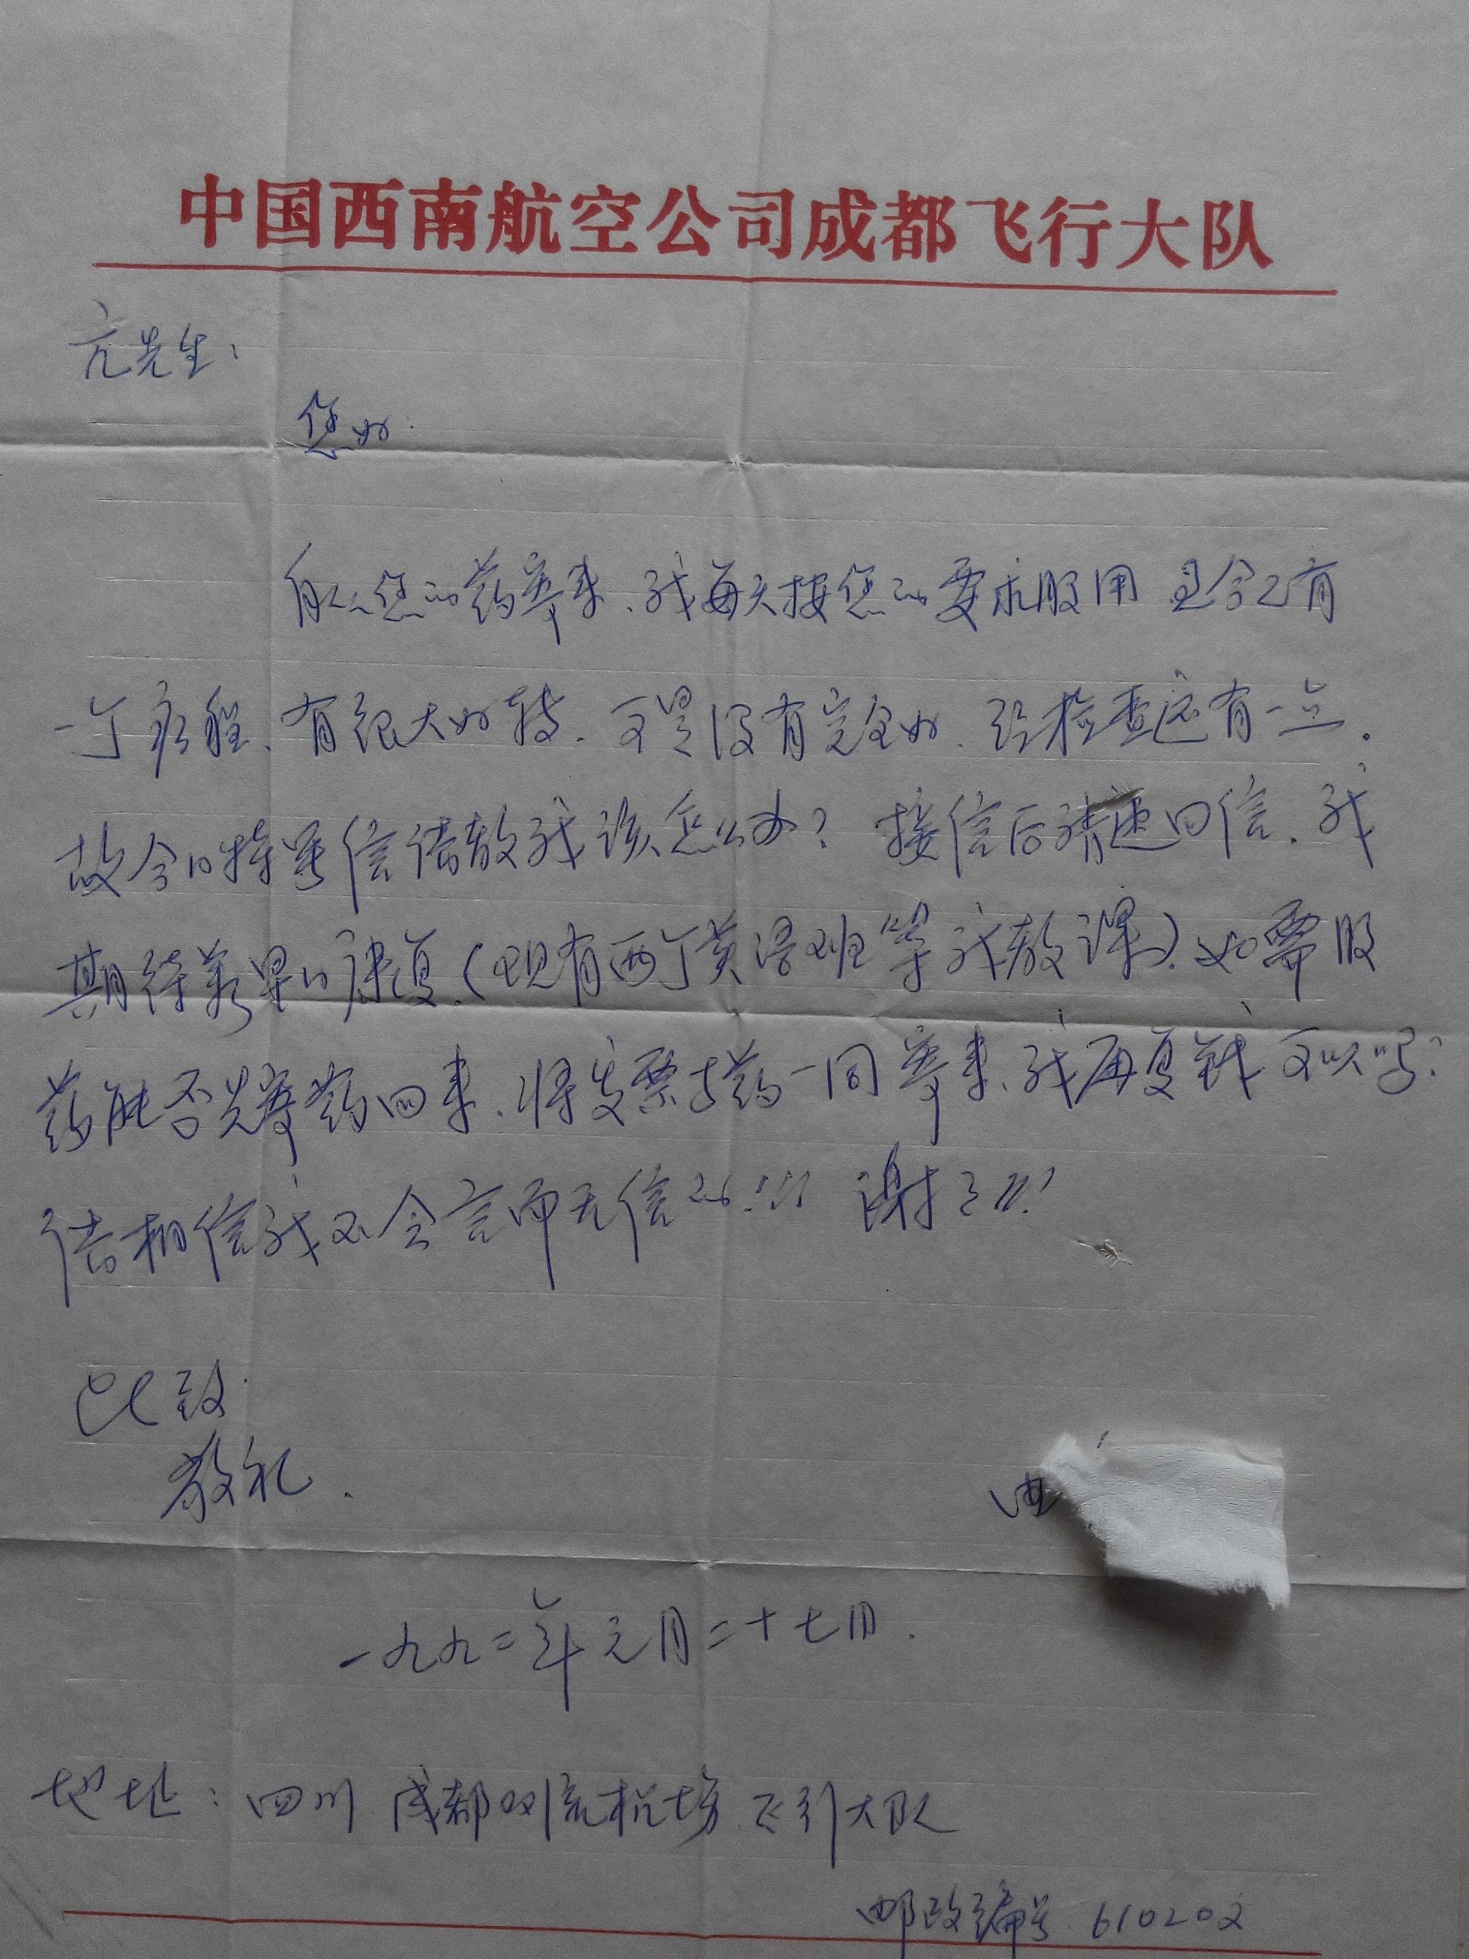 中国西南航空公司成都飞行大队
亢先生：
您好.
自从您的药寄来、我每天按您的要求服用 至今已有
一个疗程、有很大好转. 可是没有完全好. 经检查还有一点.
故今日特写信请教我该怎么办？ 接信后请速回信. 我
期待着早日康复.(现有两个英语班等我教课). 如需服
药能否先寄药回来. 将发票与药一同寄来、我再复钱 可以吗？
请相信我不会言而无信的!!! 谢了!!!
此致
敬礼.
一九九二年元月二十七日.
地址：四川 成都双流机场 飞行大队
邮政编号 610202